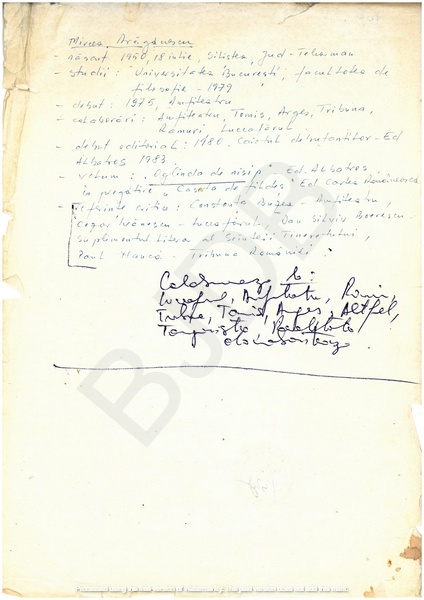 Mircea Drăgănescu
- născut 1950, 18 iulie, Siliștea, jud. Teleorman
- studii: Universitatea București, facultatea de
filosofie - 1979
- debut: 1975, Amfiteatru
- colaborări: Amfiteatru, Tomis, Argeș, Tribuna,
Ramuri, Luceafărul
- debut editorial: 1980. Caietul debutanților - Ed
Albatros 1983.
- volum: "Oglinda de nisip" Ed. Albatros
în pregătire "Caseta de fildeș" Ed Cartea Românească
- referințe critice: Constanța Buzea - Amfiteatru,
- Luceafărul, Dan Silviu Boerescu -
Suplimentul literar al Scînteii Tineretului
Paul - Tribuna României
Colaborează la:
Luceafărul, Amfiteatru,
Tomis, Argeș, Altfel,
BJDB